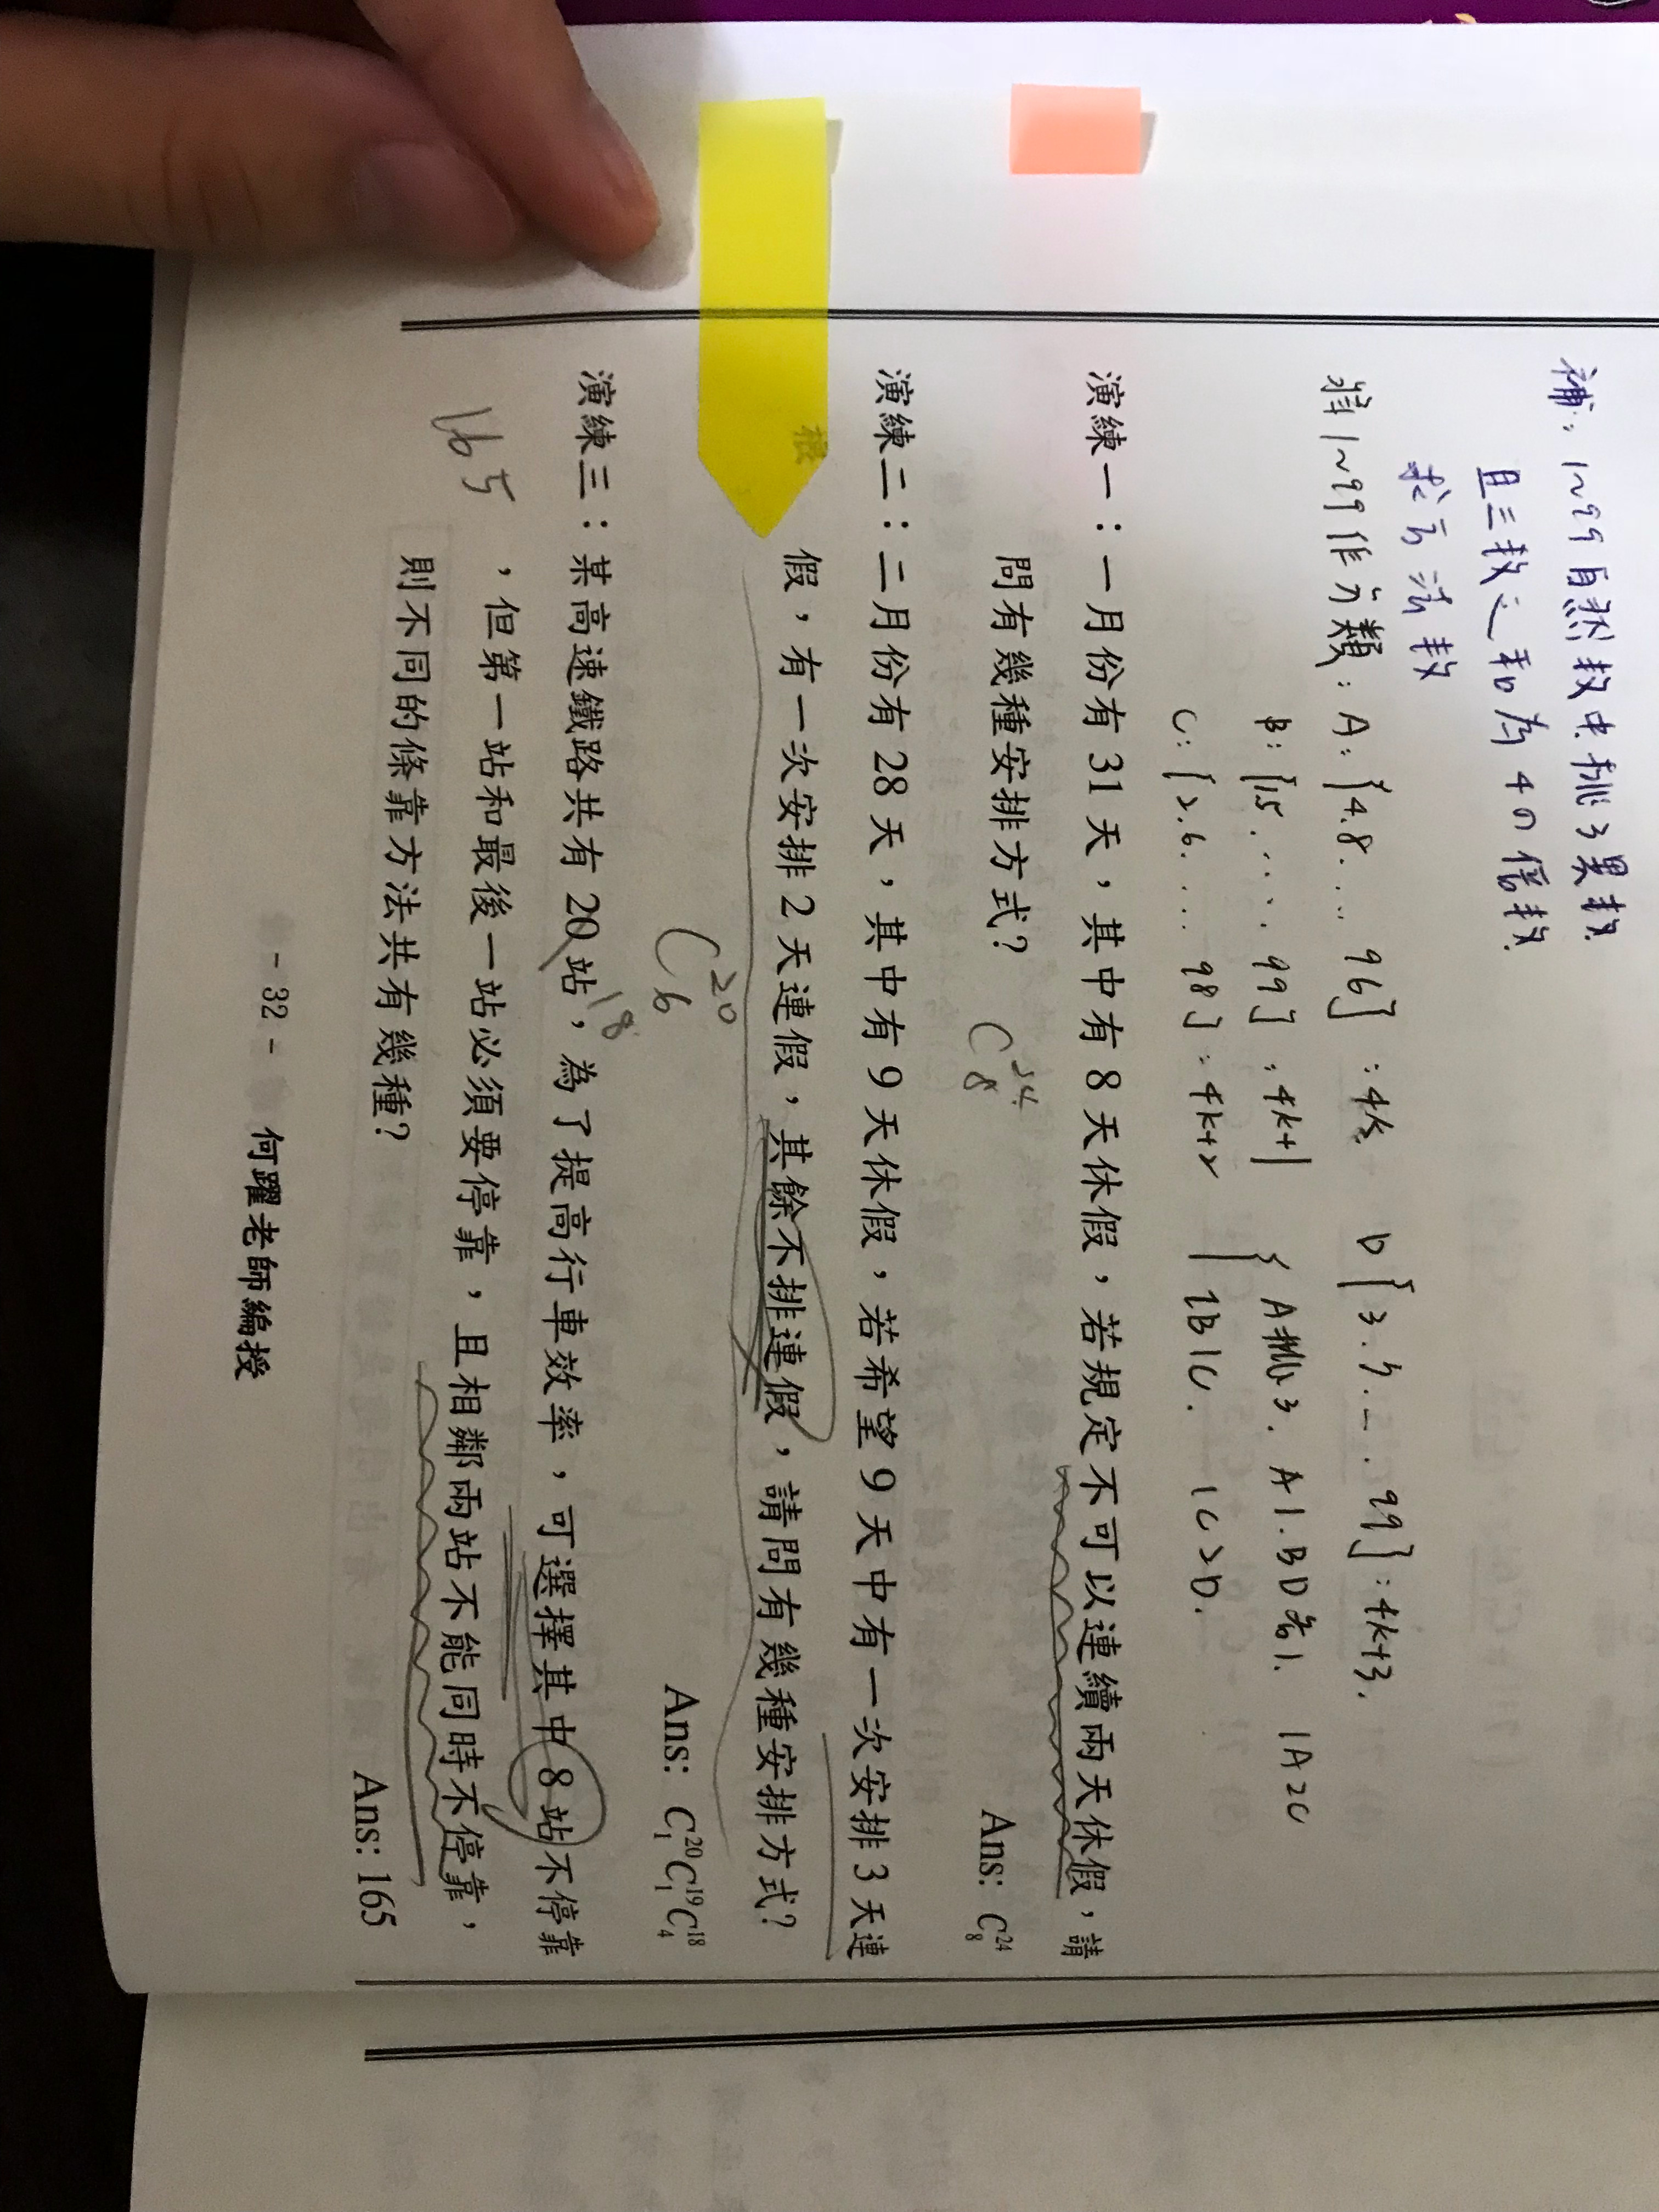 補：1~99自然數中挑3異數
且三數之和為4的倍數
求方法數
將1~99作分類：A：{4.8... 96}：4k D{3.7...99}：4k+3.
B：{1.5.... 99}：4k+1 { A挑3. A1.BD各1. 1A2C
C：{2.6.... 98}：4k+2 2B1C. 1C2D.
演練一：一月份有31天，其中有8天休假，若規定不可以連續兩天休假，請
問有幾種安排方式？
C 24 8
Ans: C₈²⁴
演練二：二月份有28天，其中有9天休假，若希望9天中有一次安排3天連
假，有一次安排2天連假，其餘不排連假，請問有幾種安排方式？
C 20 6
Ans: C₁²⁰C₁¹⁹C₄¹⁸
18
演練三：某高速鐵路共有20站，為了提高行車效率，可選擇其中8站不停靠
，但第一站和最後一站必須要停靠，且相鄰兩站不能同時不停靠，
165
則不同的條靠方法共有幾種？
Ans: 165
- 32 - 何躍老師編授